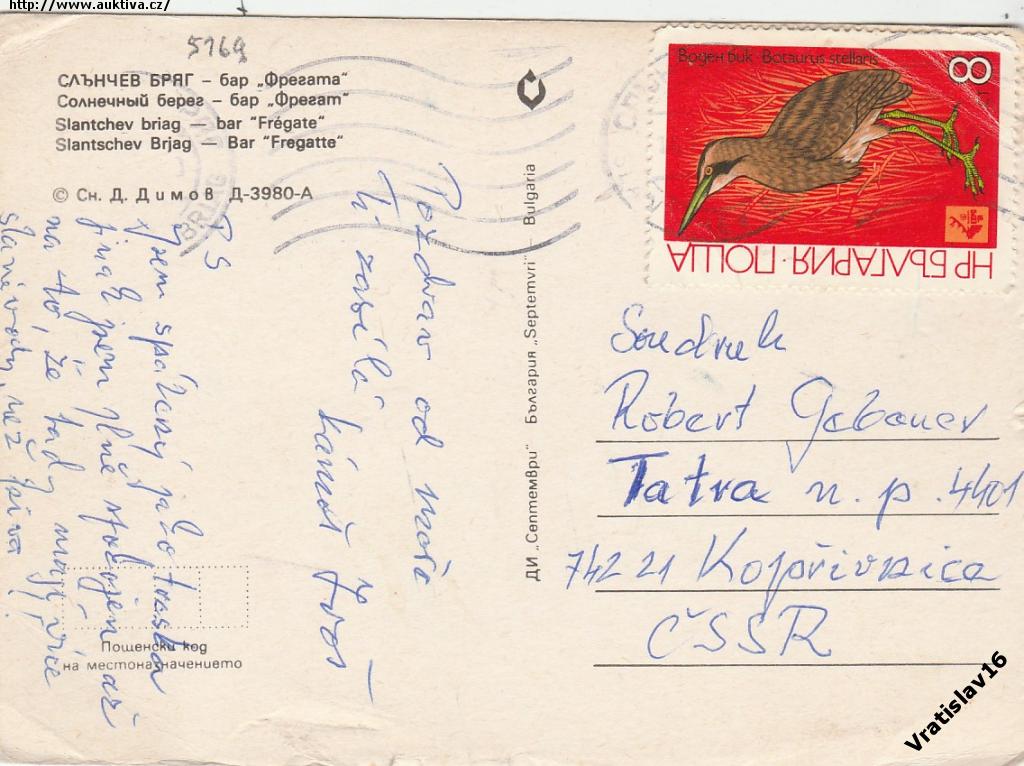 http://www.auktiva.cz/
5169
СЛЪНЧЕВ БРЯГ – бар „Фрегата“
Солнечный берег – бар „Фрегат“
Slantchev briag — bar "Frégate"
Slantschev Brjag — Bar "Fregatte"
© Сн. Д. Димов Д-3980-А
Pozdrav od moře
ti zasílá
PS
jsem spálený jako troska
jinak jsem spokojen až
na to, že tady mají více
slané vody, než piva!
Пощенски код
на местоназначението
ДИ „Септември“ България „Septemvri“ — Bulgaria
BRIAG
Воден бик · Botaurus stellaris
8
НР БЪЛГАРИЯ · ПОЩА
Soudruh
Robert Gebauer
Tatra n. p. 4401
742 21 Kopřivnice
ČSSR
Vratislav16